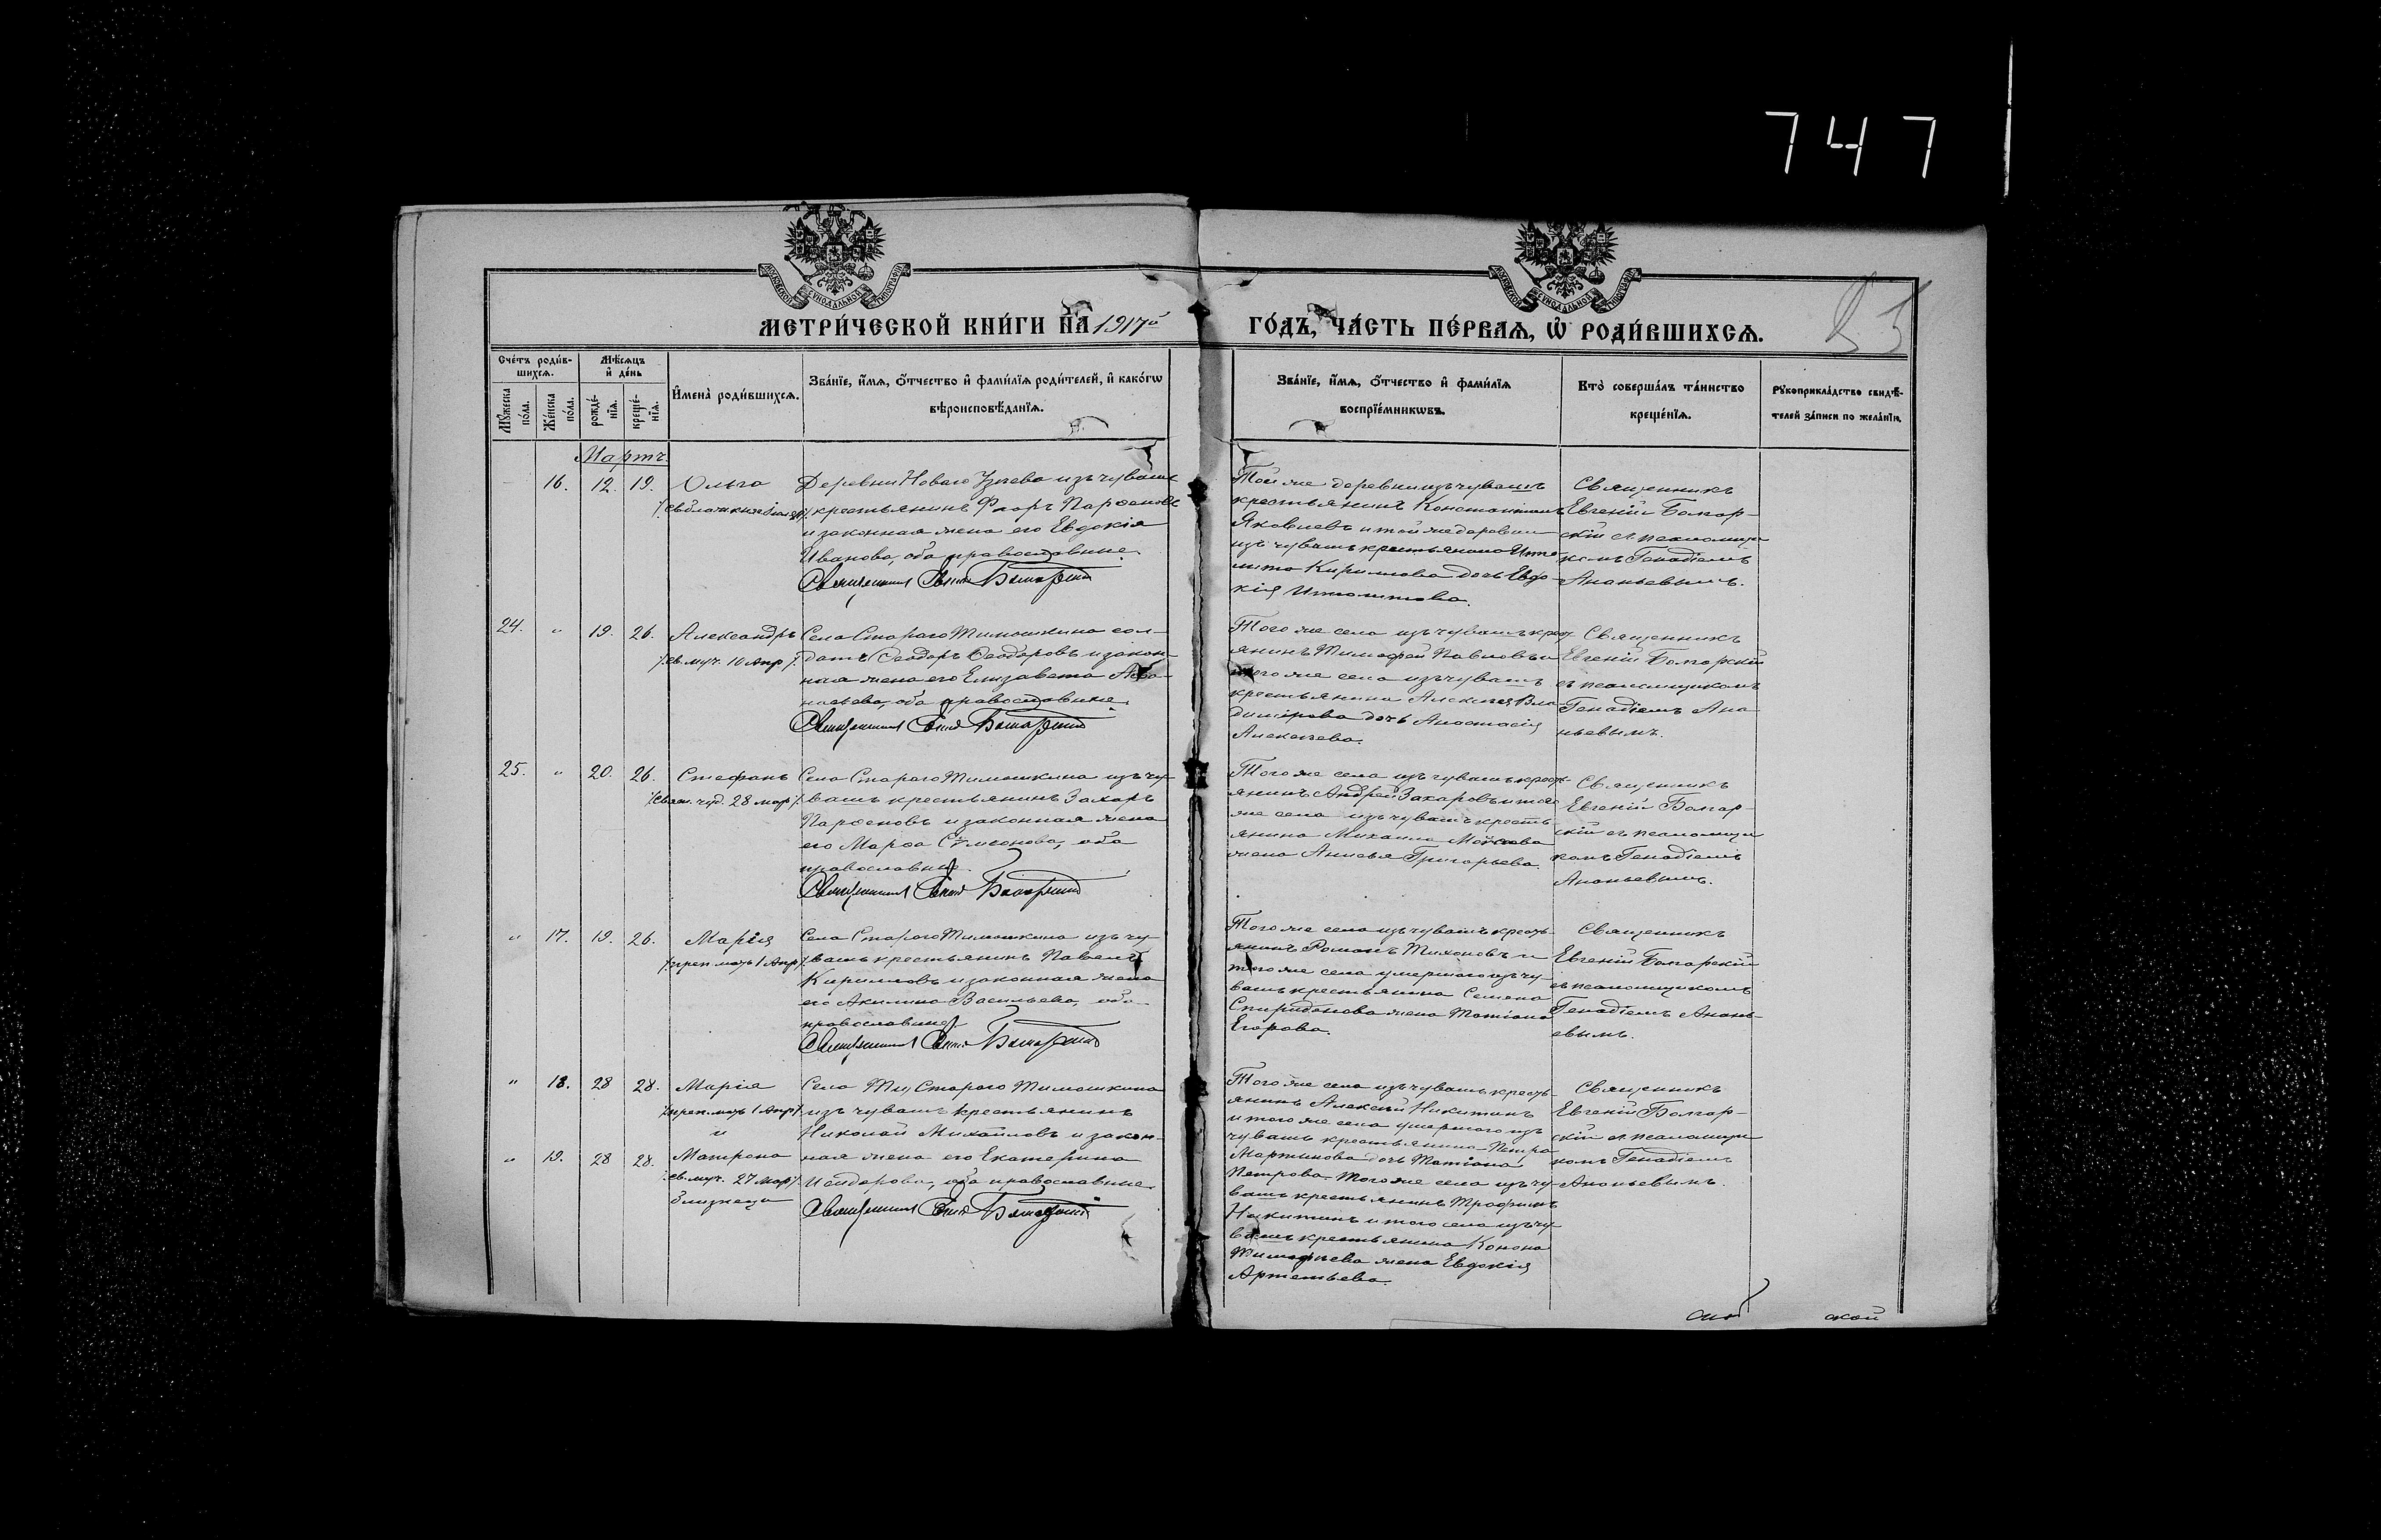 747
МОСКОВСКОЙ СѴНОДАЛЬНОЙ ТИПОГРАФІИ
МОСКОВСКОЙ СѴНОДАЛЬНОЙ ТИПОГРАФІИ
МЕТРИ́ЧЕСКОЙ КНИ́ГИ НА 1917й
ГО́ДЪ, ЧА́СТЬ ПЕ́РВАѦ, Ѡ҆ РОДИ́ВШИХСѦ.
Сче́тъ роди́в-
шихсѧ.
Мѣ́сѧцъ
и҆ де́нь
Мꙋ́жеска по́ла.
Же́нска по́ла.
рожде́-нїѧ.
креще́-нїѧ.
И҆мена̀ роди́вшихсѧ.
Зва́нїе, и҆́мѧ, о҆́тчество и҆ фами́лїѧ роди́телей, и҆ како́гѡ
вѣроисповѣ́данїѧ.
Зва́нїе, и҆́мѧ, о҆́тчество и҆ фами́лїѧ
воспрїе́мникѡвъ.
Кто̀ соверша́лъ та́инство
креще́нїѧ.
Рꙋкоприкла́дство свидѣ́-
телей за́писи по жела́нїю.
Мартъ.
16. 12. 19. Ольга
Деревни Новаго Узеева изъ чувашъ
крестьянинъ Флоръ Парѳеновъ
и законная жена его Евдокія
Иванова, оба православные.
Священникъ Евгеній Болгарскій
Той же деревни изъ чувашъ
крестьянинъ Константинъ
Яковлевъ и той же деревни
изъ чувашъ крестьянина Иппо-
лита Кириллова дочь Евдо-
кія Ипполитова.
Священникъ
Евгеній Болгар-
скій съ псаломщи
комъ Генадіемъ
Ананьевымъ.
24. " 19. 26. Александръ
/св. муч. 10 Апр/.
Села Стараго Тимошкина сол-
датъ Ѳеодоръ Ѳеодоровъ и закон-
ная жена его Елизавета Аѳа-
насьева, оба православные.
Священникъ Евгеній Болгарскій
Того же села изъ чувашъ крест
янинъ Тимофей Павловъ и
того же села изъ чувашъ
крестьянина Алексея Вла
димірова дочь Анастасія
Алексеева.
Священникъ
Евгеній Болгарскій
съ псаломщикомъ
Генадіемъ Ана
ньевымъ.
25. " 20. 26. Стефанъ
28 мар/.
Села Стараго Тимошкина изъ чу-
вашъ крестьянинъ Захаръ
Парѳеновъ и законная жена
его Марѳа Сѵмеонова, оба
православные.
Священникъ Евгеній Болгарскій
Того же села изъ чувашъ крест-
янинъ Андрей Захаровъ и того
же села изъ чувашъ кресть-
янина Михаила
жена Анисья Григорьева.
Священникъ
Евгеній Болгар-
скій съ псаломщи
комъ Генадіемъ
Ананьевымъ.
" 17. 19. 26. Марія
/преп. мать 1 Апр/.
Села Стараго Тимошкина изъ чу-
вашъ крестьянинъ Павелъ
Кирилловъ и законная жена
его Акилина Васильева, оба
православные
Священникъ Евгеній Болгарскій
Того же села изъ чувашъ кресть-
янинъ Романъ Тихоновъ и
того же села умершаго изъ чу-
вашъ крестьянина Семена
Спиридонова жена Татіана
Егорова.
Священникъ
Евгеній Болгарскій
съ псаломщикомъ
Генадіемъ Анань-
евымъ.
" 18. 28 28. Марія
/преп. мать 1 Апр/
и
" 19. 28 28. Матрона
/св. муч. 27 Мар/.
близнецы
Села Ти, Стараго Тимошкина
изъ чувашъ крестьянинъ
Николай Михайловъ и закон-
ная жена его Екатерина
Исидорова, оба православные.
Священникъ Евгеній Болгарскій
Того же села изъ чувашъ кресть-
янинъ Алексѣй Никитинъ
и того же села умершаго изъ
чувашъ крестьянина Петра
Мартынова дочь Татіана
Петрова. Того же села изъ чу-
вашъ крестьянинъ Трофимъ
Никитинъ и того села изъ чу
вашъ крестьянина Конона
Тимофеева жена Евдокія
Артемьева.
Священникъ
Евгеній Болгар-
скій съ псаломщи
комъ Генадіемъ
Ананьевымъ.
ской